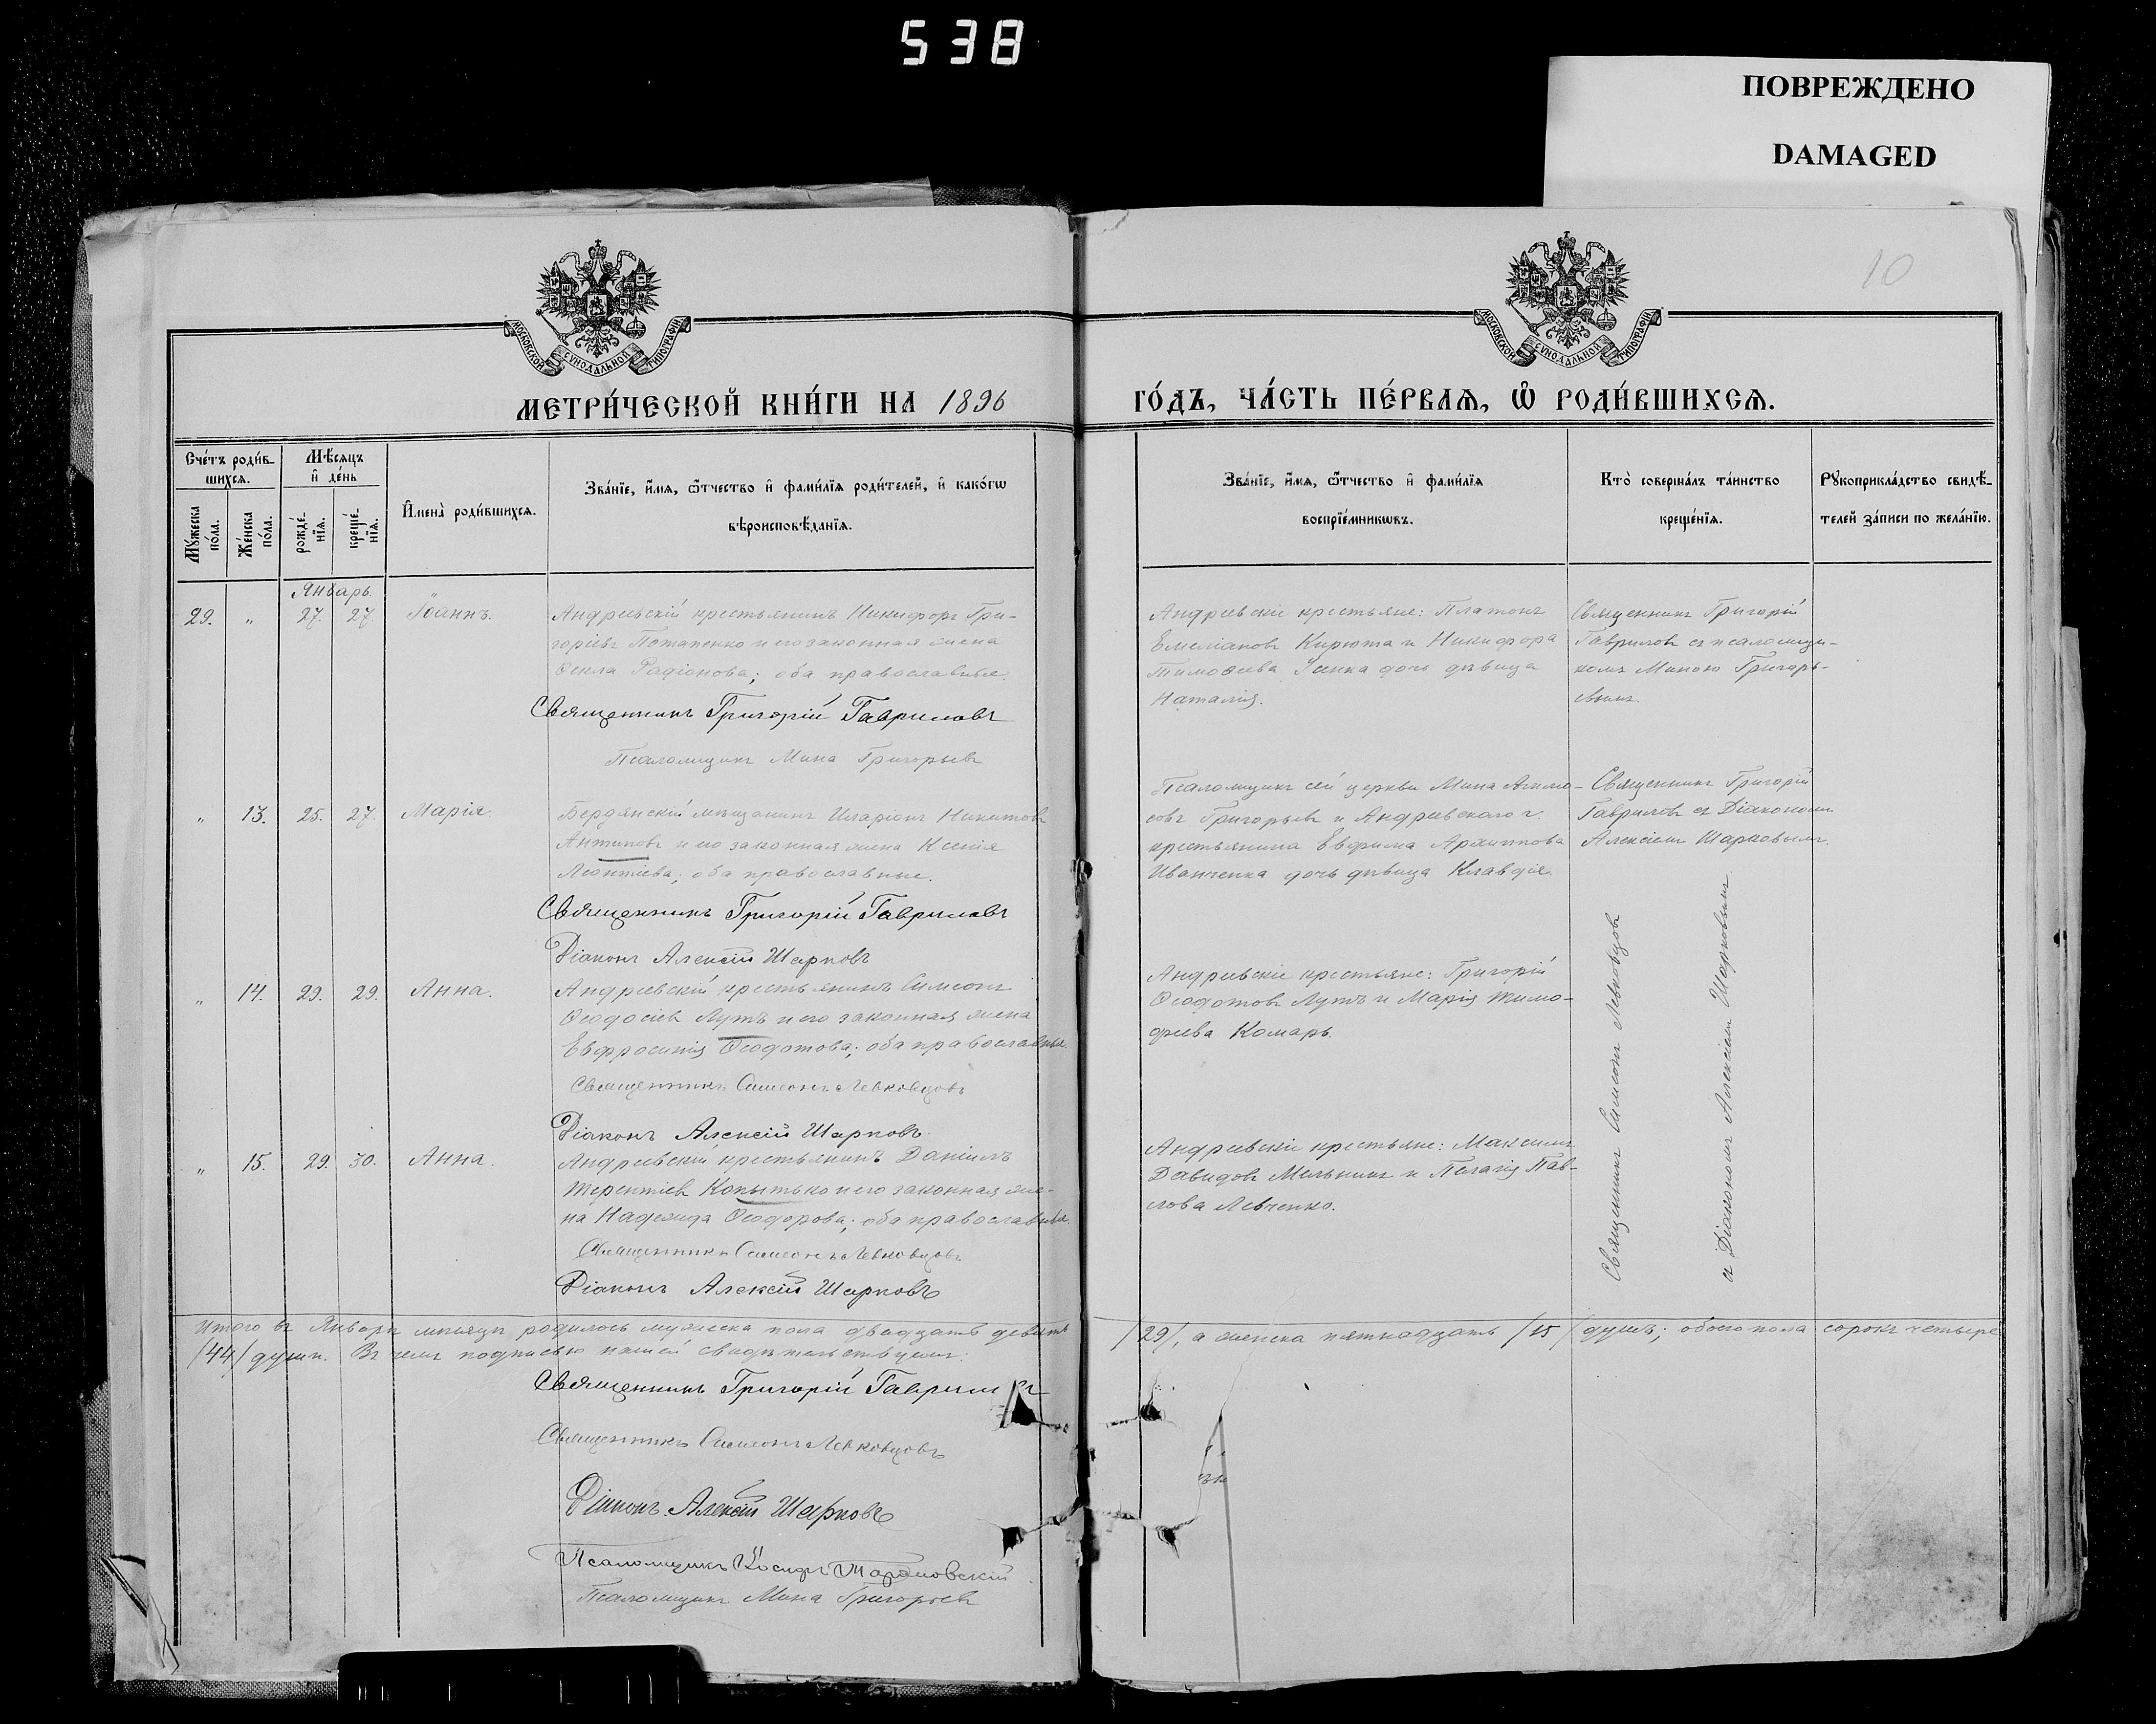 538
ПОВРЕЖДЕНО
DAMAGED
10
МОСКОВСКОЙ СѴНОДАЛЬНОЙ ТИПОГРАФІИ
МОСКОВСКОЙ СѴНОДАЛЬНОЙ ТИПОГРАФІИ
МЕТРИ́ЧЕСКОЙ КНИ́ГИ НА 1896
ГО́ДЪ, ЧА́СТЬ ПЕ́РВАѦ, Ѡ҆ РОДИ́ВШИХСѦ.
Сче́тъ роди́в-
шихсѧ.
Мꙋ́жеска по́ла.
Же́нска по́ла.
Мѣ́сѧцъ
и҆ де́нь
рожде́-
нїѧ.
креще́-
нїѧ.
И҆мена̀ роди́вшихсѧ.
Зва́нїе, и҆́мѧ, ѻ҆́тчество и҆ фами́лїѧ роди́телей, и҆ како́гѡ
вѣроисповѣ́данїѧ.
Зва́нїе, и҆́мѧ, ѻ҆́тчество и҆ фами́лїѧ
воспрїе́мникѡвъ.
Кто̀ соверша́лъ та́инство
креще́нїѧ.
Рꙋкоприкла́дство свидѣ́-
телей за́писи по жела́нїю.
Январь.
29. „ 27. 27. Іоаннъ.
Андреевскій крестьянинъ Никифоръ Гри-
горіевъ Потапенко и его законная жена
Ѳекла Радіонова; оба православные.
Священникъ Григорій Гавриловъ
Псаломщикъ Мина Григорьевъ
Андреевскіе крестьяне: Платонъ
Емеліановъ Кирюта и Никифора
Тимоѳеева дочь дѣвица
Наталія.
Священникъ Григорій
Гавриловъ съ псаломщи-
комъ Миною Григорь-
евымъ.
„ 13. 25. 27. Марія.
Бердянскій мѣщанинъ Иларіонъ Никитовъ
Антиповъ и его законная жена Ксенія
Леонтіева; оба православные.
Священникъ Григорій Гавриловъ
Діаконъ Алексій Шарковъ
Псаломщикъ сей церкви Мина
Григорьевъ и Андреевскаго г.
крестьянина Евфима Архиппова
Иванченка дочь дѣвица Клавдія.
Священникъ Григорій
Гавриловъ съ Діакономъ
Алексіемъ Шарковымъ.
„ 14. 29. 29. Анна.
Андреевскій крестьянинъ Симеонъ
Ѳеодосіевъ Лутъ и его законная жена
Евфросинія Ѳеодотова; оба православные.
Священникъ Симеонъ Левковцовъ
Діаконъ Алексій Шарковъ
Андреевскіе крестьяне: Григорій
Ѳеодотовъ Лутъ и Марія Тимо-
фѣева Комаръ.
Священникъ Симеонъ Левковцовъ
съ Діакономъ Алексіемъ Шарковымъ.
„ 15. 29. 30. Анна.
Андреевскій крестьянинъ Даніилъ
Терентіевъ Копытько и его законная же-
на Надежда Ѳеодорова; оба православные.
Священникъ Симеонъ Левковцовъ
Діаконъ Алексій Шарковъ
Андреевскіе крестьяне: Максимъ
Давидовъ Мельникъ и Пелагія Пав-
лова Левченко.
Итого въ Январѣ мѣсяцѣ родилось мужеска пола двадцать девять /29/, а женска пятнадцать /15/ душъ; обоего пола сорокъ четыре
/44/ души. Въ чемъ подписью нашей свидѣтельствуемъ:
Священникъ Григорій Гавриловъ
Священникъ Симеонъ Левковцовъ
Діаконъ Алексій Шарковъ
Псаломщикъ Іосифъ Тарановскій
Псаломщикъ Мина Григорьевъ